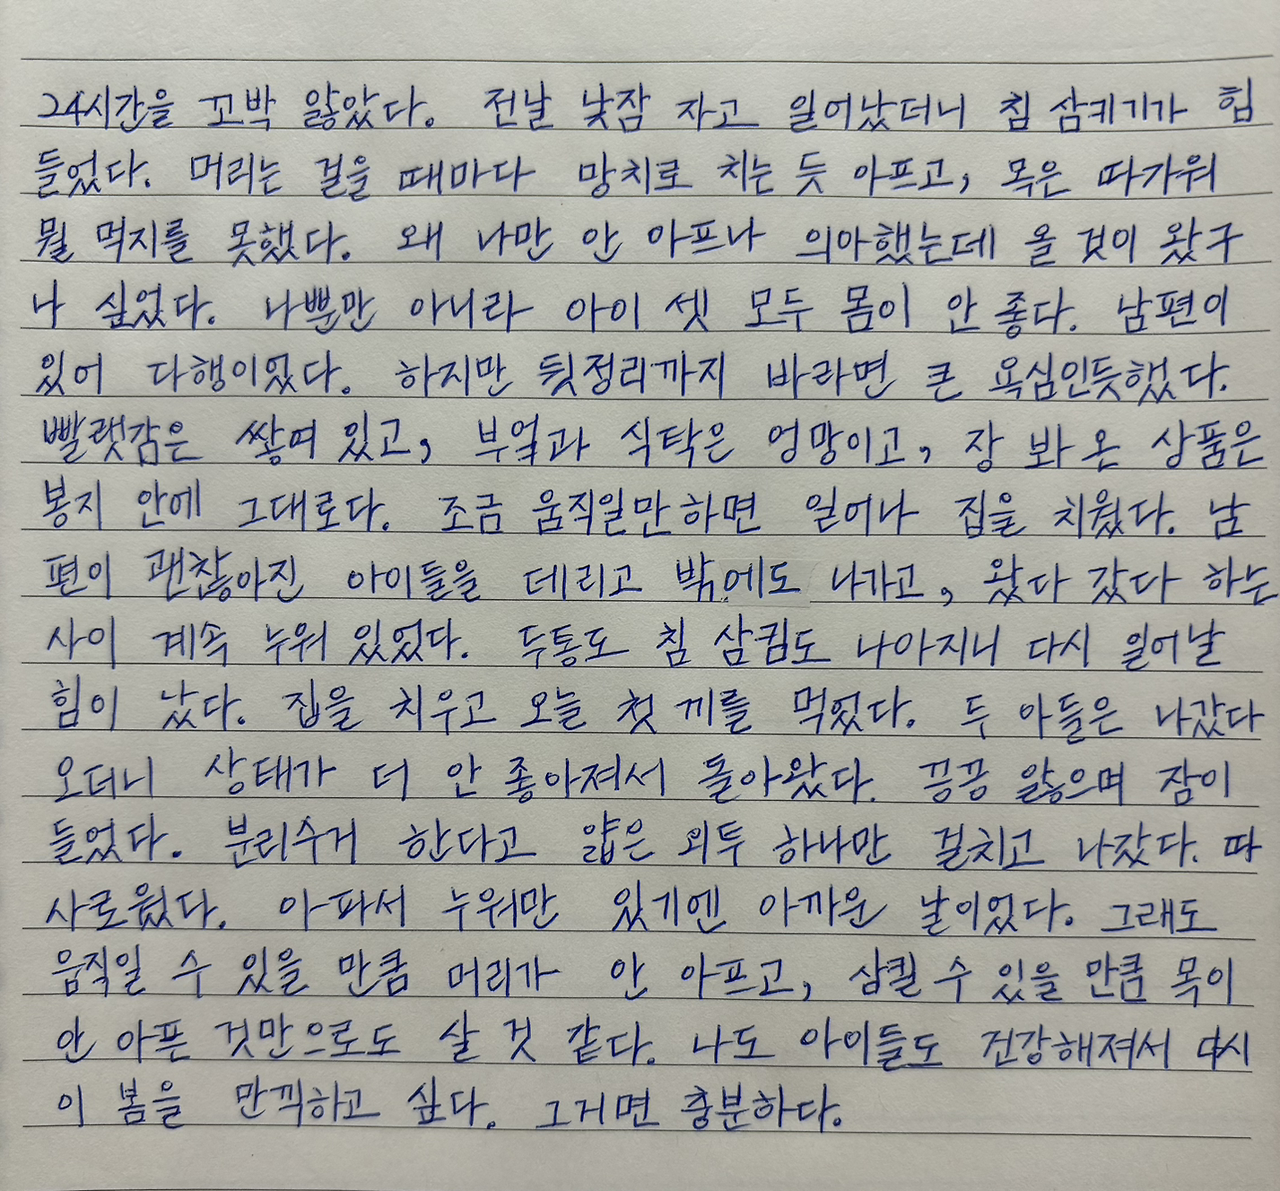 24시간을 꼬박 앓았다. 전날 낮잠 자고 일어났더니 침 삼키기가 힘
들었다. 머리는 걸을 때마다 망치로 치는 듯 아프고, 목은 따가워
뭘 먹지를 못했다. 왜 나만 안 아프나 의아했는데 올 것이 왔구
나 싶었다. 나뿐만 아니라 아이 셋 모두 몸이 안 좋다. 남편이
있어 다행이었다. 하지만 뒷정리까지 바라면 큰 욕심인듯했다.
빨랫감은 쌓여 있고, 부엌과 식탁은 엉망이고, 장 봐 온 상품은
봉지 안에 그대로다. 조금 움직일만하면 일어나 집을 치웠다. 남
편이 괜찮아진 아이들을 데리고 밖에도 나가고, 왔다 갔다 하는
사이 계속 누워 있었다. 두통도 침 삼킴도 나아지니 다시 일어날
힘이 났다. 집을 치우고 오늘 첫 끼를 먹었다. 두 아들은 나갔다
오더니 상태가 더 안 좋아져서 돌아왔다. 끙끙 앓으며 잠이
들었다. 분리수거 한다고 얇은 외투 하나만 걸치고 나갔다. 따
사로웠다. 아파서 누워만 있기엔 아까운 날이었다. 그래도
움직일 수 있을 만큼 머리가 안 아프고, 삼킬 수 있을 만큼 목이
안 아픈 것만으로도 살 것 같다. 나도 아이들도 건강해져서 다시
이 봄을 만끽하고 싶다. 그거면 충분하다.